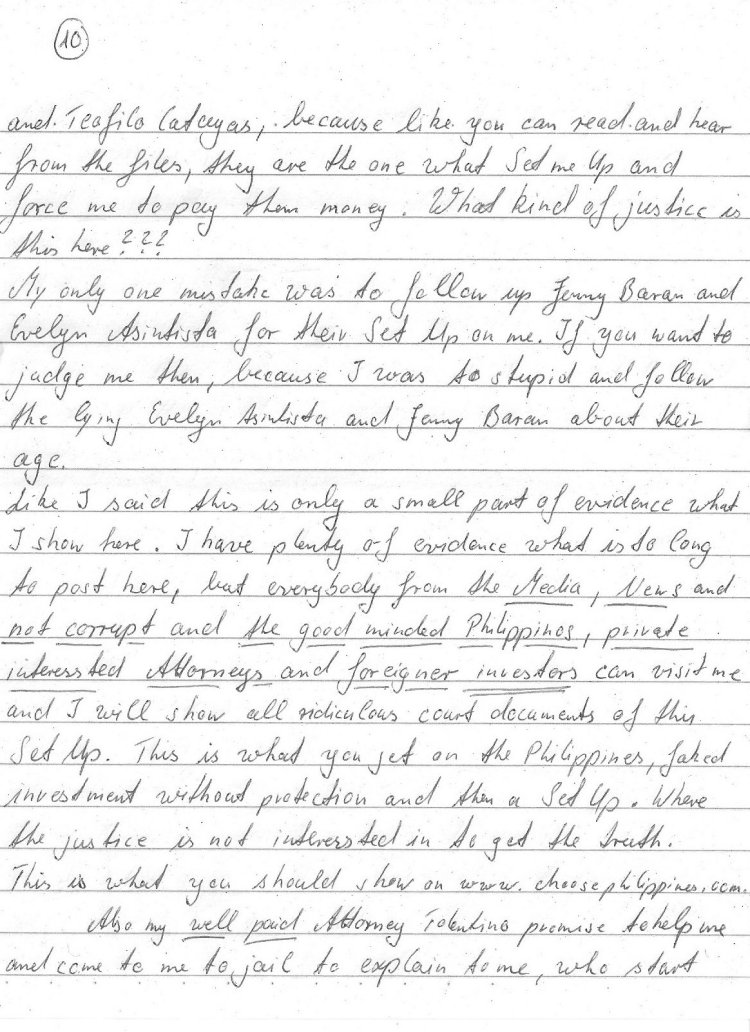 10
and Teofilo Catayas, because like you can read and hear
from the files, they are the one what Set me Up and
force me to pay them money. What kind of justice is
this here???
My only one mistake was to follow up Jenny Baran and
Evelyn Asintista for their Set Up on me. If you want to
judge me then, because I was to stupid and follow
the lying Evelyn Asintista and Jenny Baran about their
age.
Like I said this is only a small part of evidence what
I show here. I have plenty of evidence what is to long
to post here, but everybody from the Media, News and
not corrupt and the good minded Philippinos, private
interessted Attorneys and foreigner investors can visit me
and I will show all ridiculous court documents of this
Set Up. This is what you get on the Philippines, faked
investment without protection and then a Set Up. Where
the justice is not interessted in to get the truth.
This is what you should show on www.choosephilippines.com.
Also my well paid Attorney Tolentino promise to help me
and come to me to jail to explain to me, who start